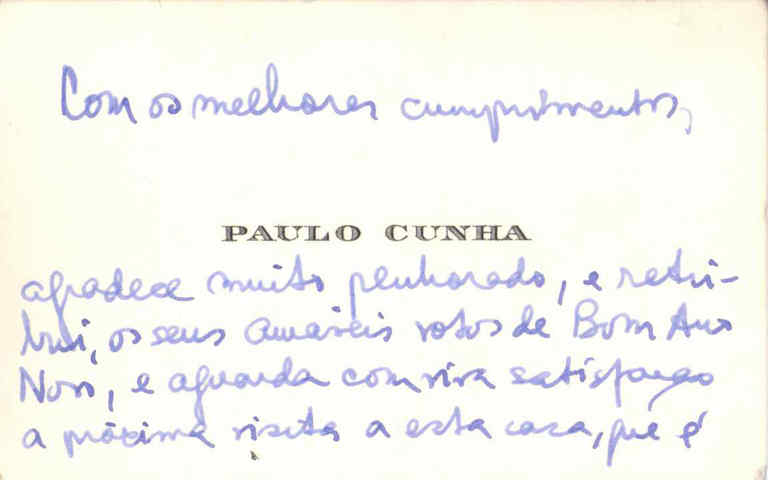 Com os melhores cumprimentos,
PAULO CUNHA
agradece muito penhorado, e retri-
bui, os seus amáveis votos de Bom Ano
Novo, e aguarda com viva satisfação
a próxima visita a esta casa, que é